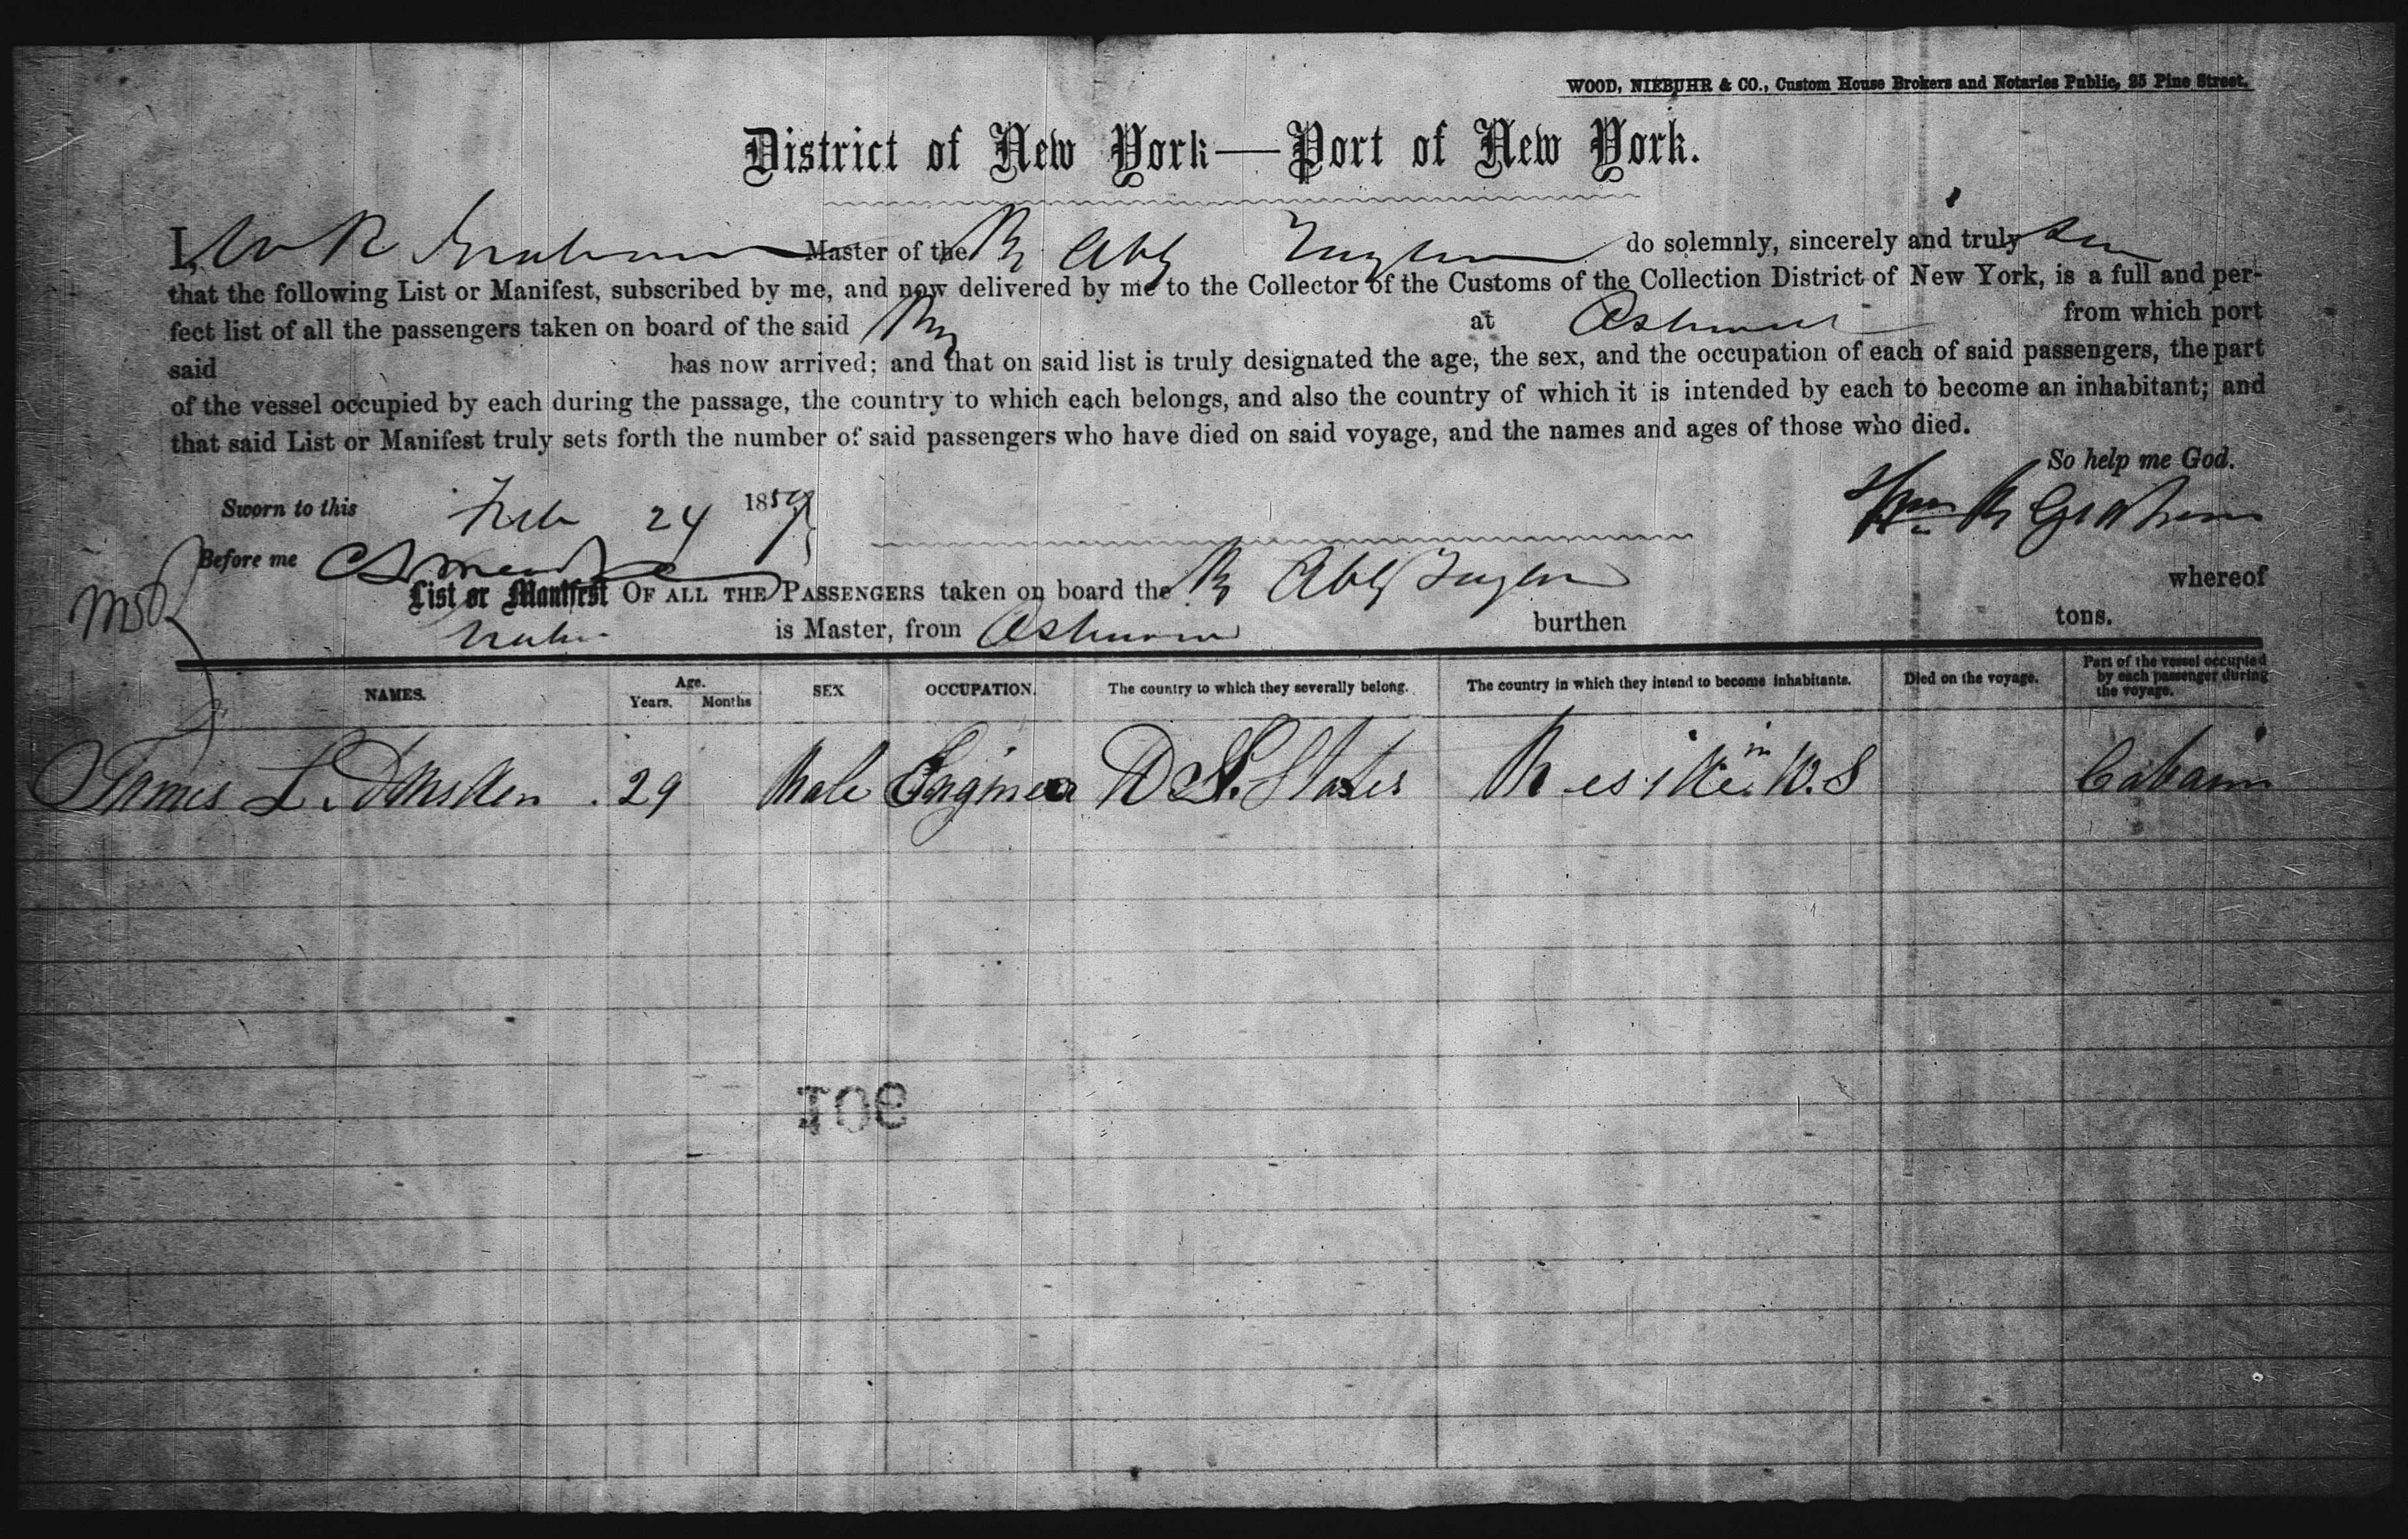 WOOD, NIEBUHR & CO., Custom House Brokers and Notaries Public, 25 Pine Street.
District of New York—Port of New York.
I, W R Graham Master of the Br Abby do solemnly, sincerely and truly
that the following List or Manifest, subscribed by me, and now delivered by me to the Collector of the Customs of the Collection District of New York, is a full and per-
fect list of all the passengers taken on board of the said Brig at from which port
said has now arrived; and that on said list is truly designated the age, the sex, and the occupation of each of said passengers, the part
of the vessel occupied by each during the passage, the country to which each belongs, and also the country of which it is intended by each to become an inhabitant; and
that said List or Manifest truly sets forth the number of said passengers who have died on said voyage, and the names and ages of those who died.
So help me God.
Sworn to this Feb 24 1859
Wm R Graham
Before me
List or Manifest OF ALL THE PASSENGERS taken on board the Br Abby whereof
is Master, from burthen tons.
NAMES. Age. Years. Months SEX OCCUPATION. The country to which they severally belong. The country in which they intend to become inhabitants. Died on the voyage. Part of the vessel occupied by each passenger during the voyage.
James L. 29 Male Engineer U. States Reside in U.S Cabain
301